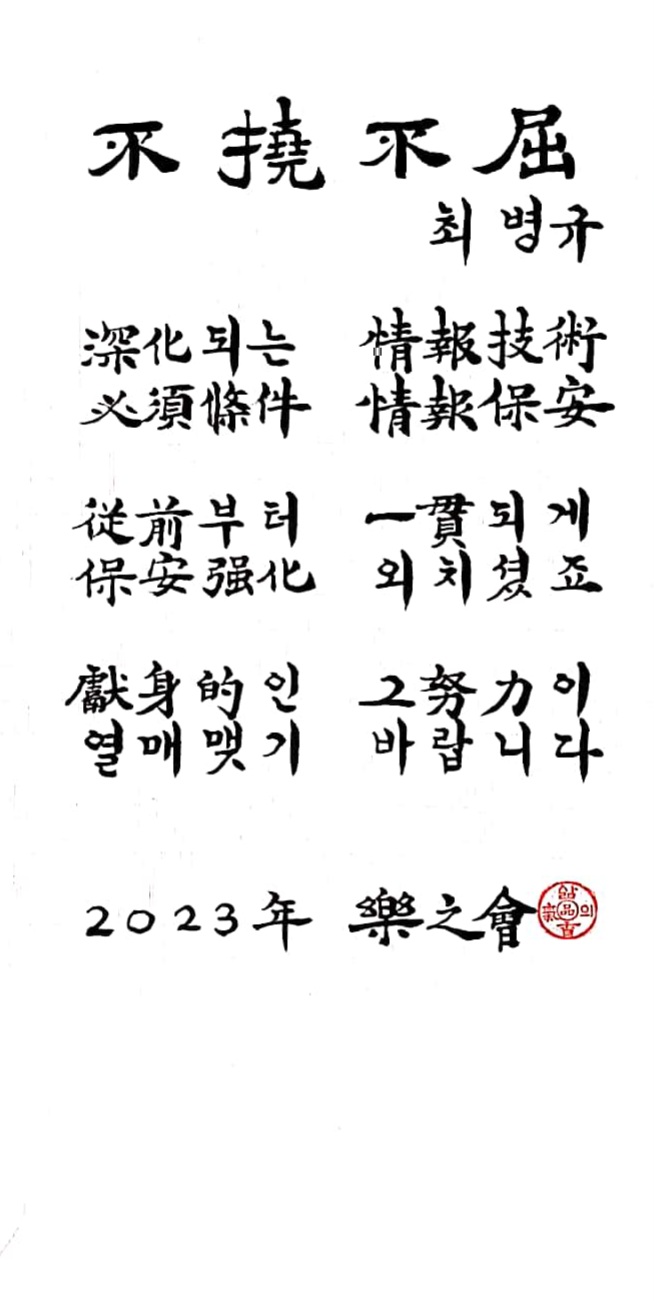 不撓不屈
최병규
深化되는 情報技術
必須條件 情報保安
從前부터 一貫되게
保安强化 외치셨죠
獻身的인 그努力이
열매맺기 바랍니다
2023年 樂之會